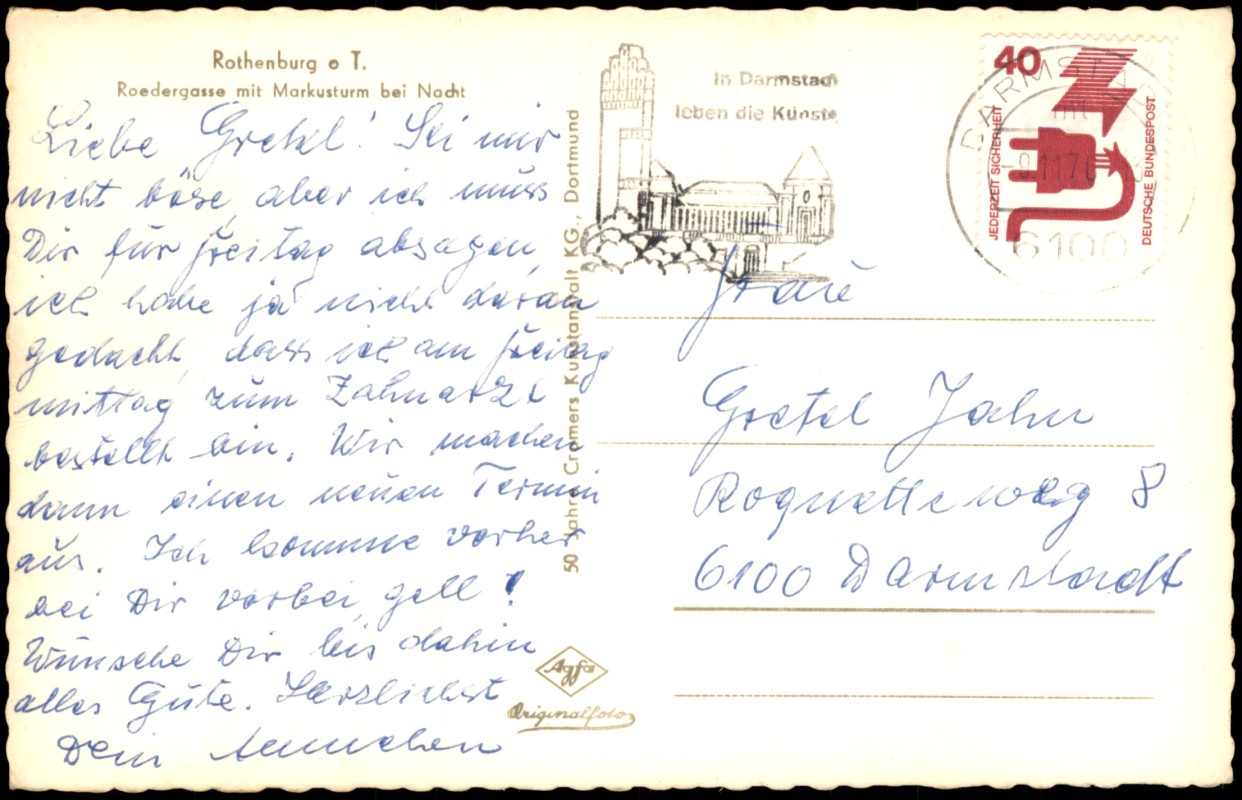 Rothenburg o T.
Roedergasse mit Markusturm bei Nacht
Liebe Gretel! Sei mir
nicht böse, aber ich muss
Dir für Freitag absagen,
ich habe ja nicht daran
gedacht, dass ich am Freitag
mittag zum Zahnarzt
bestellt bin. Wir machen
dann einen neuen Termin
aus. Ich komme vorher
bei Dir vorbei, gell!
Wünsche Dir bis dahin
alles Gute. Herzlichst
Dein Aennchen
50 Jahre Cramers Kunstanstalt KG., Dortmund
Agfa
Originalfoto
In Darmstadt
leben die Künste
DARMSTADT
6100
40
JEDERZEIT SICHERHEIT
DEUTSCHE BUNDESPOST
Frau
Gretel Jahn
Roquetteweg 8
6100 Darmstadt